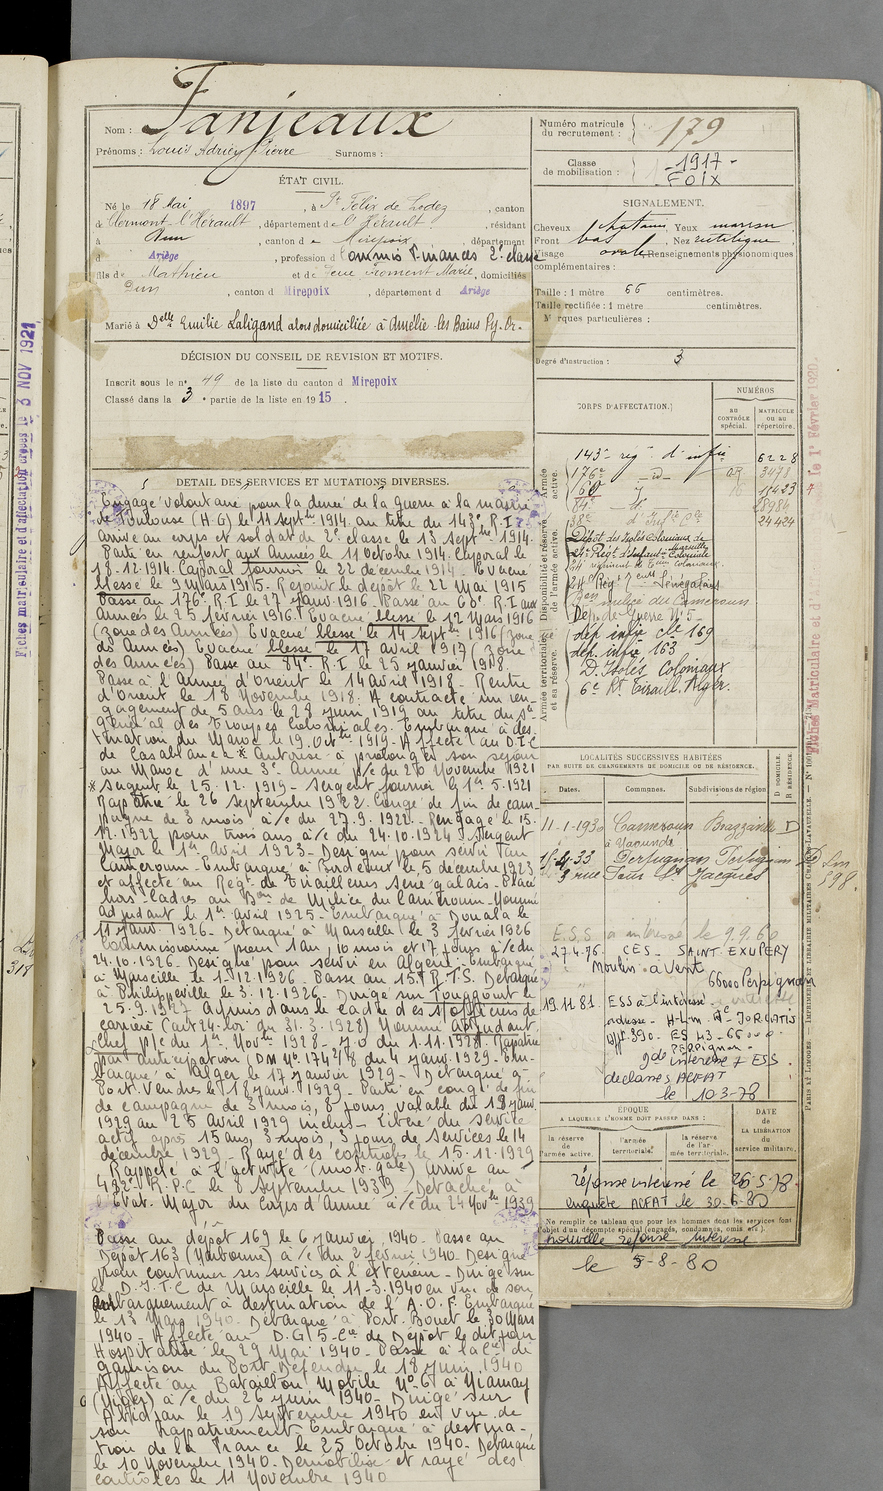 Nom : Fanjeaux
Prénoms : Louis Adrien Pierre Surnoms :
ÉTAT CIVIL.
Né le 18 Mai 1897, à St Félix de Lodez, canton
de Clermont-l'Hérault, département de l'Hérault, résidant
à Dun, canton de Mirepoix, département
d Ariège, profession d Commis Finances 2e classe
fils de Mathieu et de Froment Marie, domiciliés
Dun, canton d Mirepoix, département d Ariège
Marié à Delle Emilie Laligand alors domiciliée à Amélie les Bains Py. Or.
DÉCISION DU CONSEIL DE REVISION ET MOTIFS.
Inscrit sous le n° 49 de la liste du canton d Mirepoix
Classé dans la 3e partie de la liste en 1915.
DÉTAIL DES SERVICES ET MUTATIONS DIVERSES.
Engagé volontaire pour la durée de la guerre à la mairie
de Toulouse (H-G) le 11 septbre 1914. au titre du 143e R.I
arrivé au corps et soldat de 2e classe le 13 septbre 1914.
Parti en renfort aux Armées le 11 Octobre 1914. Caporal le
18-12-1914. Caporal fourrier le 22 décembre 1914. Evacué
blessé le 9 Mars 1915. Rejoint le dépôt le 22 Mai 1915
Passé au 176e R.I le 27 janv. 1916. Passé au 60e R.I aux
Armées le 25 février 1916. Evacué blessé le 12 Mars 1916
(zone des Armées) Evacué blessé le 14 septbre 1916 (zone
des Armées) Evacué blessé le 17 avril 1917 (zone
des Armées) Passé au 84e R.I le 25 janvier 1918.
Passé à l'Armée d'Orient le 14 avril 1918. Rentré
d'Orient le 18 Novembre 1918. A contracté un ren-
gagement de 5 ans le 28 juin 1919 au titre du
général des Troupes Coloniales. Embarqué à des-
tination du Maroc le 19 Octbre 1919. Affecté au D.I.C
de Casablanca * Autorisé à prolonger son séjour
au Maroc d'une 3e Année p/c du 20 Novembre 1921
* Sergent le 25.12.1919 - Sergent fourrier le 1er 5.1921
Rapatrié le 26 Septembre 1922. Congé de fin de cam-
pagne de 3 mois à/c du 27.9.1922. Rengagé le 15.
12.1922 pour trois ans à/c du 24.10.1924. Sergent
Major le 1er Avril 1923. Désigné pour servir au
Cameroun. Embarqué à Bordeaux le 5 décembre 1923
et affecté au Régt de Tirailleurs Sénégalais. Placé
hors-cadres au Bon de Milice du Cameroun. Nommé
adjudant le 1er avril 1925. Embarqué à Douala le
11 janv. 1926. Débarqué à Marseille le 3 février 1926
Commissionné pour 1 an, 10 mois et 17 jours à/c du
24.10.1926. Désigné pour servir en Algérie. Embarqué
à Marseille le 1-12.1926. Passé au 15e R.T.S. Débarqué
à Philippeville le 3.12.1926. Dirigé sur Touggourt le
25.9.1927 Admis dans le cadre des s/officiers de
carrière (art 24. loi du 31.3.1928) Nommé adjudant
chef p/c du 1er Novbre 1928 - J.O du 1.11.1928. Rapatrié
par anticipation (DM N° 17424/8 du 4 janv. 1929. Em-
barqué à Alger le 17 janvier 1929. Débarqué à
Port. Vendres le 18 janv. 1929. Parti en congé de fin
de campagne de 3 mois, 8 jours, valable du 18 janv.
1929 au 25 avril 1929 inclus. Libéré du service
actif après 15 ans, 3 mois, 3 jours de services le 14
décembre 1929. Rayé des contrôles le 15.12.1929
Rappelé à l'activité (mob. gale) arrivé au
R.P.C le 8 Septembre 1939. Détaché à
l'Etat. Major du Corps d'Armée à/c du 24 Novbre 1939
Passé au dépôt 169 le 6 janvier 1940. Passé au
Dépôt 163 (Narbonne) à/c du 2 février 1940. Désigné
pour continuer ses services à l'extérieur. Dirigé sur
le D.I.T.C de Marseille le 11-3.1940 en vue de son
embarquement à destination de l'A.O.F. Embarqué
le 13 Mars 1940. Débarqué à Port. Bouet le 30 Mars
1940. Affecté au D.G 5. Cie de Dépôt le dit jour
Hospitalisé le 29 Mai 1940. Passé à la Cie de
garnison du Port Défendu le 18 juin 1940
Affecté au Bataillon Mobile N° 6 à Niamey
(Niger) à/c du 26 juin 1940. Dirigé sur
Abidjan le 19 Septembre 1940 en vue de
son rapatriement. Embarqué à destina-
tion de la France le 25 Octobre 1940. Débarqué
le 10 Novembre 1940. Démobilisé et rayé des
contrôles le 11 Novembre 1940
Numéro matricule du recrutement : 179
Classe de mobilisation : 1917
FOIX
SIGNALEMENT.
Cheveux châtains, Yeux marron
Front bas, Nez rectiligne
Visage ovale Renseignements physionomiques
complémentaires :
Taille : 1 mètre 66 centimètres.
Taille rectifiée : 1 mètre centimètres.
Marques particulières :
Degré d'instruction : 3
CORPS D'AFFECTATION.
NUMÉROS
AU CONTRÔLE spécial.
MATRICULE OU AU répertoire.
Armée active.
Disponibilité et réserve de l'armée active.
Armée territoriale et sa réserve.
143e rég. d'infie 6228
176e -d- 3478
60 11423
84e 18984
38e d'Infie Cle 24424
Dépôt des Isolés Coloniaux de Marseille
21e Régt d'Infant. Coloniale
Bon milice du Cameroun
Dép. de Guerre N° 5
dép. infie cle 169
dép. infie 163
D. Isolés Coloniaux
6e Rt Tiraill. Alger.
LOCALITÉS SUCCESSIVES HABITÉES
PAR SUITE DE CHANGEMENTS DE DOMICILE OU DE RÉSIDENCE.
Dates. Communes. Subdivisions de région. D DOMICILE. R RÉSIDENCE.
11-1-1930 Cameroun Brazzaville D
à Yaoundé
15-4-33 Perpignan Perpignan D
3 rue St Jacques
E.S.S à intéressé le 9.9.60
27.4.76. CES - SAINT EXUPERY
Moulin à Vent
66000 Perpignan
19.11.81. ESS à l'intéressé
adresse - H-L-M
Appt 390 - 66000
PERPIGNAN
intéressé + ESS
declasses ACFAT
le 10-3-78
ÉPOQUE
A LAQUELLE L'HOMME DOIT PASSER DANS :
la réserve de l'armée active.
l'armée territoriale.
la réserve de l'armée territoriale.
DATE DE LA LIBÉRATION du service militaire.
réponse intéressé le 26-5-78.
enquête ACFAT le 30-6-80
Ne remplir ce tableau que pour les hommes dont les services font
l'objet d'un décompte spécial (engagés, condamnés, omis, etc.).
nouvelle réponse intéressé
le 5-8-80
PARIS ET LIMOGES. — IMPRIMERIE ET LIBRAIRIE MILITAIRES CHARLES-LAVAUZELLE.
Fiches matricule et d'affectation créées le 3 NOV 1921
le 1er Février 1920.